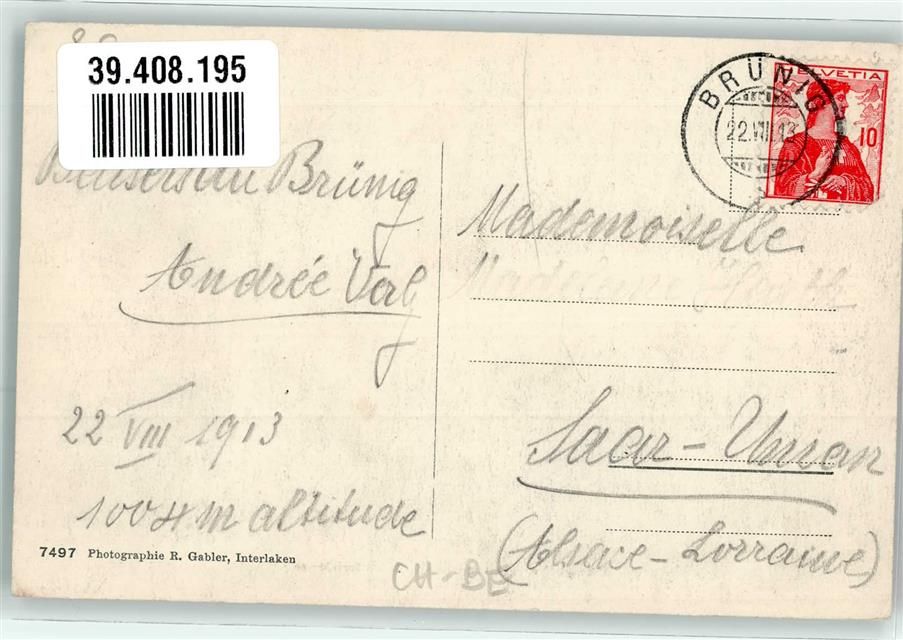 39.408.195
BRÜNIG
22.VIII.13
HELVETIA
10
Brünig
Andrée
22 VIII 1913
1004 m altitude
7497 Photographie R. Gabler, Interlaken
Mademoiselle
Saar-Union
(Alsace-Lorraine)
CH-BE